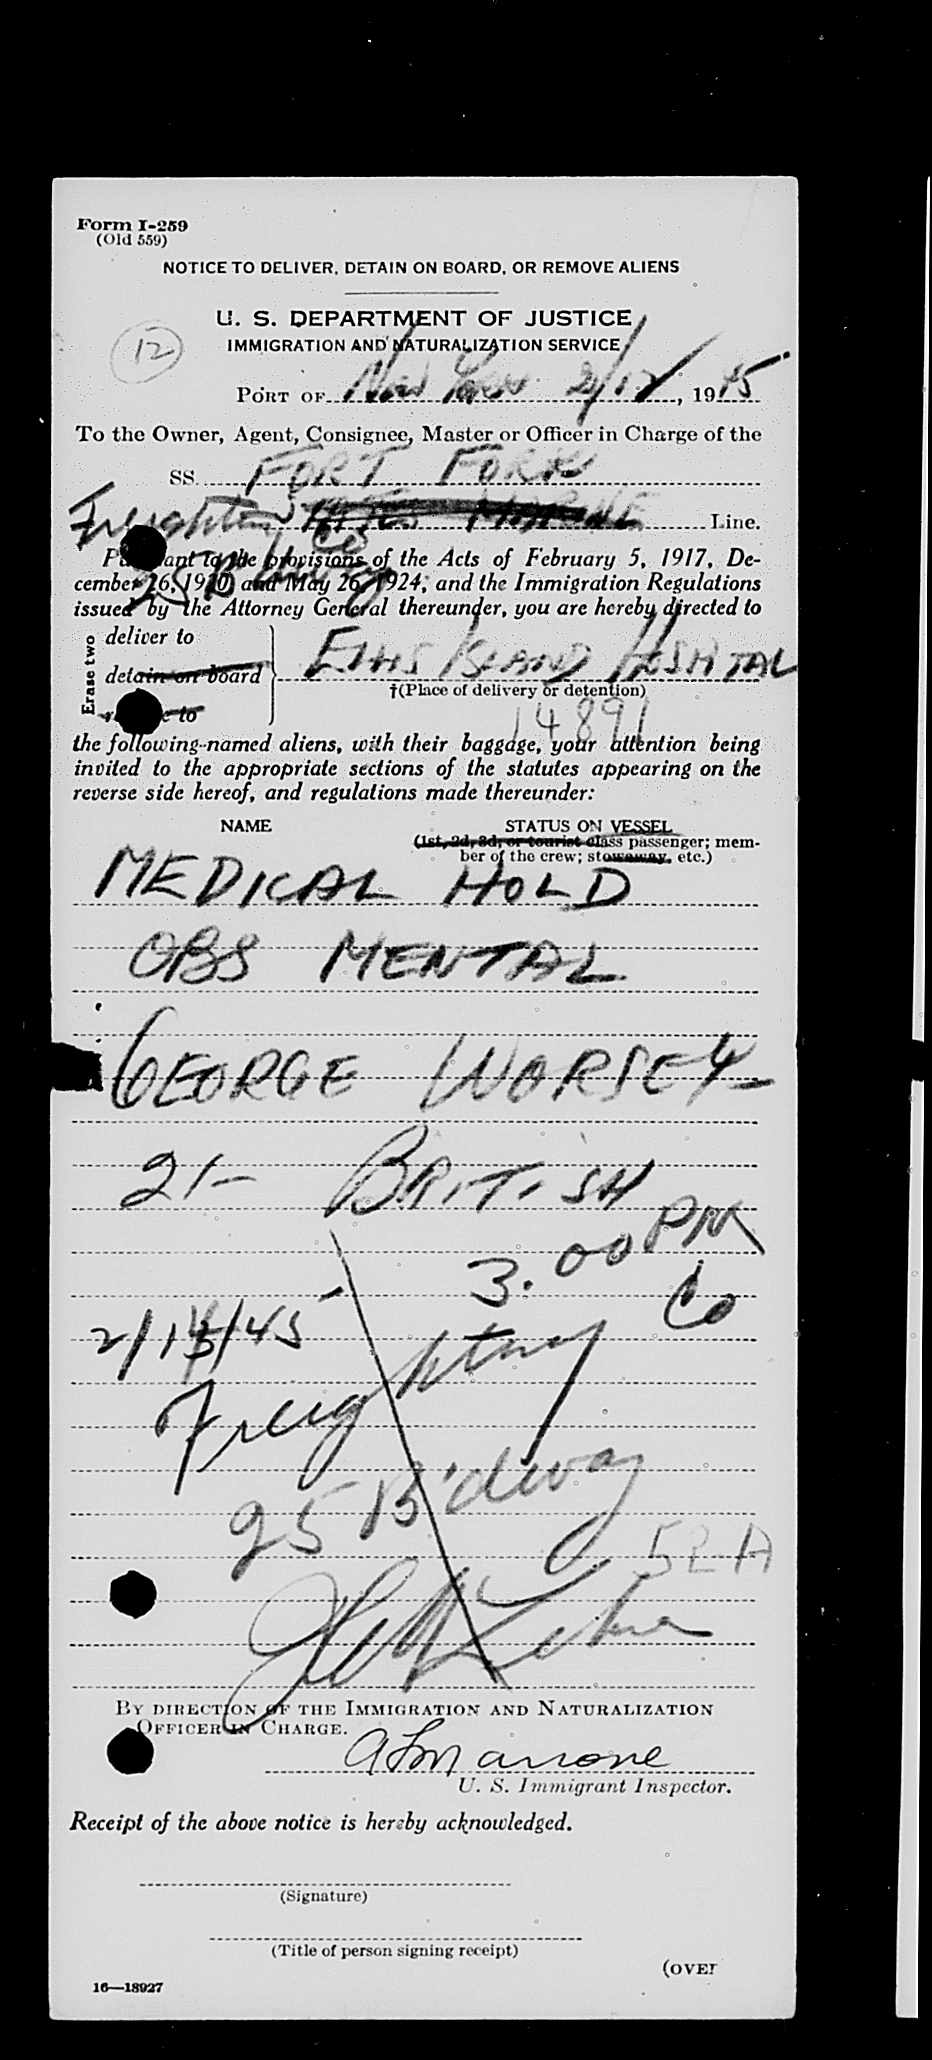 Form I-259
(Old 559)
NOTICE TO DELIVER, DETAIN ON BOARD, OR REMOVE ALIENS
U. S. DEPARTMENT OF JUSTICE
IMMIGRATION AND NATURALIZATION SERVICE
12
PORT OF New York 2/12/, 1945
To the Owner, Agent, Consignee, Master or Officer in Charge of the
SS. FORT FORK
Freighting Line.
Co
Pursuant to the provisions of the Acts of February 5, 1917, De-
cember 26, 1920, and May 26, 1924, and the Immigration Regulations
25 B'dway
issued by the Attorney General thereunder, you are hereby directed to
Erase two
deliver to
detain on board
remove to
ELLIS ISLAND HOSPITAL
†(Place of delivery or detention)
14891
the following-named aliens, with their baggage, your attention being
invited to the appropriate sections of the statutes appearing on the
reverse side hereof, and regulations made thereunder:
NAME STATUS ON VESSEL
(1st, 2d, 3d, or tourist class passenger; mem-
ber of the crew; stowaway, etc.)
MEDICAL HOLD
OBS MENTAL
GEORGE WORSEY
21- BRITISH
3.00 PM
2/13/45
Freighting Co
25 B'dway
52A
BY DIRECTION OF THE IMMIGRATION AND NATURALIZATION
OFFICER IN CHARGE.
A L Marrone
U. S. Immigrant Inspector.
Receipt of the above notice is hereby acknowledged.
(Signature)
(Title of person signing receipt)
(OVER
16—18927